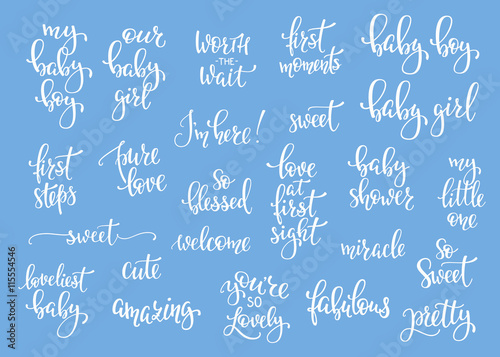 my
baby
boy
our
baby
girl
WORTH
-THE-
wait
first
moments
baby boy
baby girl
I'm here!
sweet
first
steps
pure
love
so
blessed
love
at
first
sight
baby
shower
my
little
one
sweet
welcome
miracle
so
sweet
loveliest
baby
cute
amazing
you're
so
Lovely
fabulous
pretty
#115554546